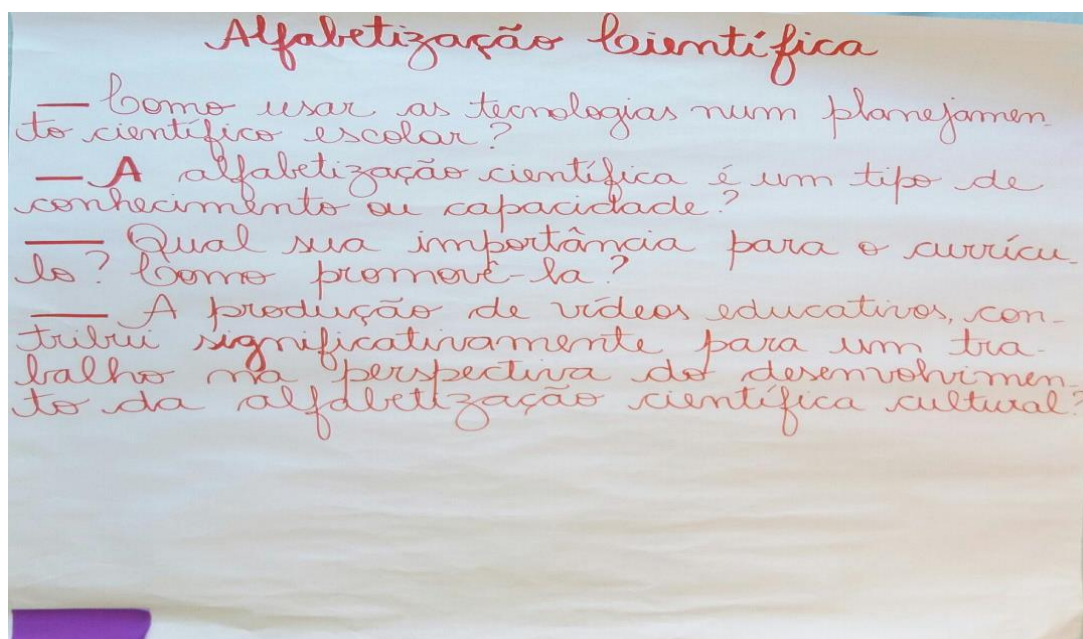 Alfabetização Científica
— Como usar as tecnologias num planejamen-
to científico escolar?
— A alfabetização científica é um tipo de
conhecimento ou capacidade?
— Qual sua importância para o currícu-
lo? Como promovê-la?
— A produção de vídeos educativos, con-
tribui significativamente para um tra-
balho na perspectiva do desenvolvimen-
to da alfabetização científica cultural?